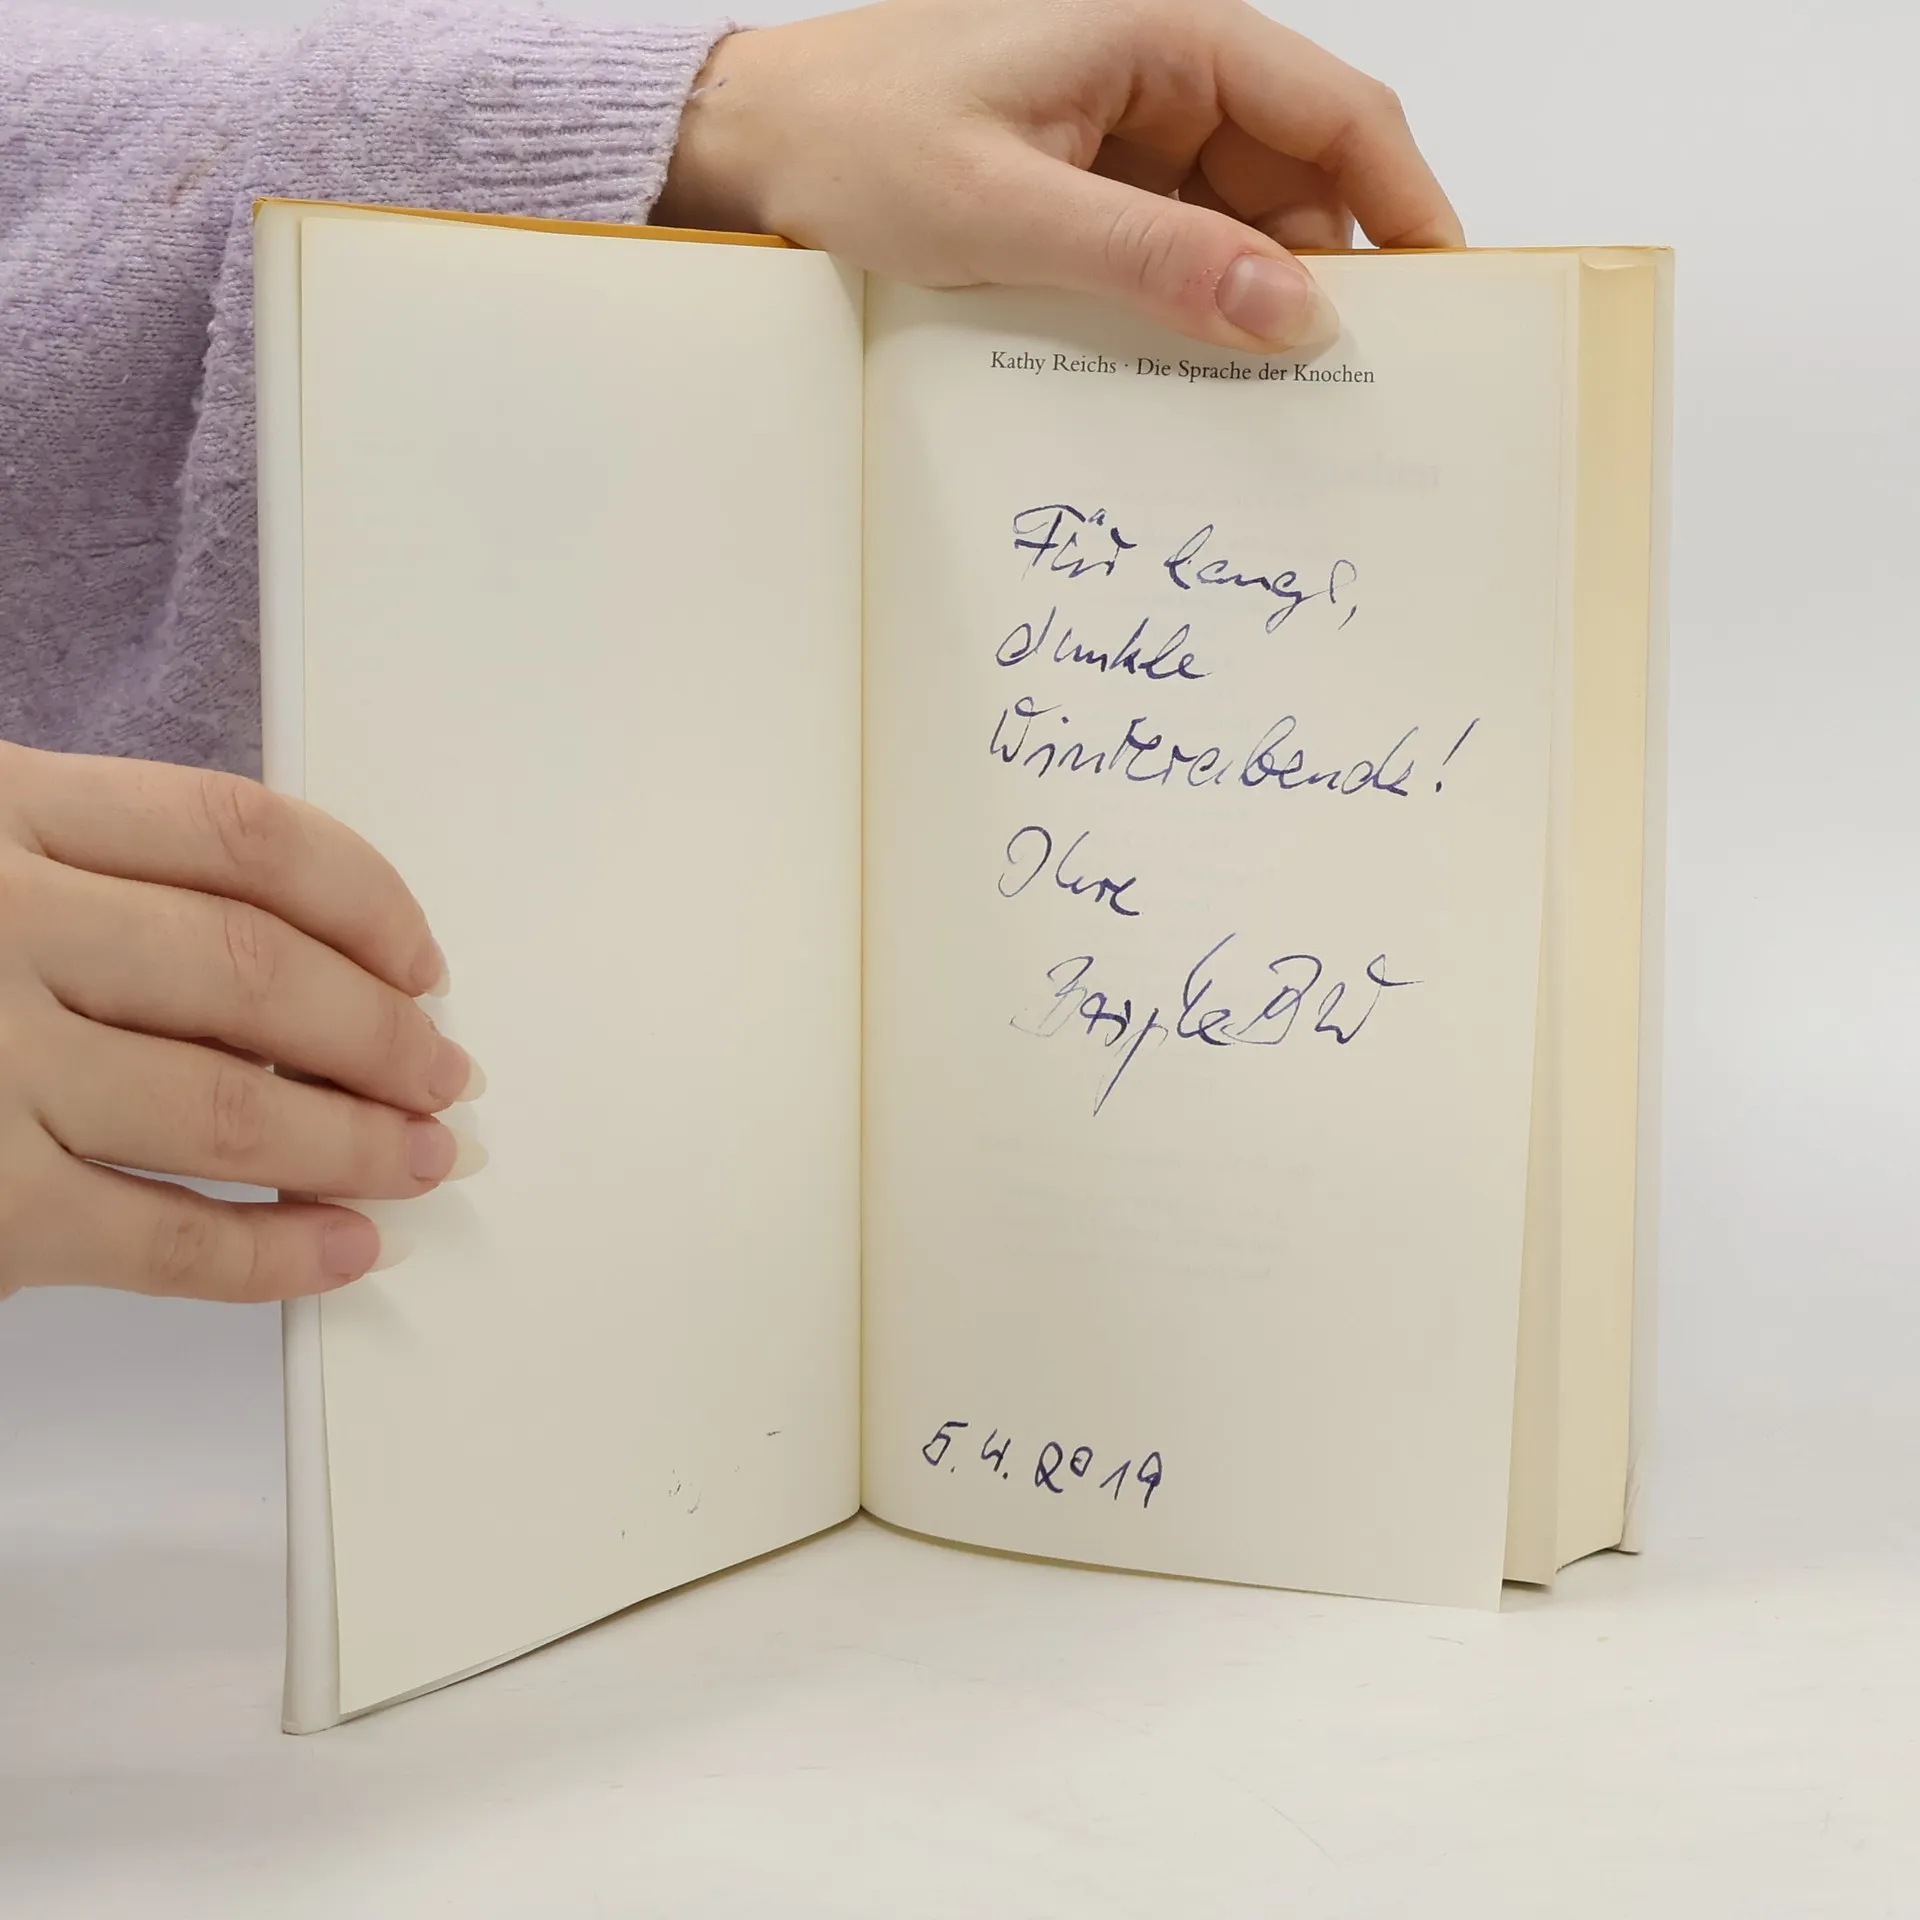 Kathy Reichs · Die Sprache der Knochen
Für lange,
dunkle
Winterabende!
Ihre
5.4.2019